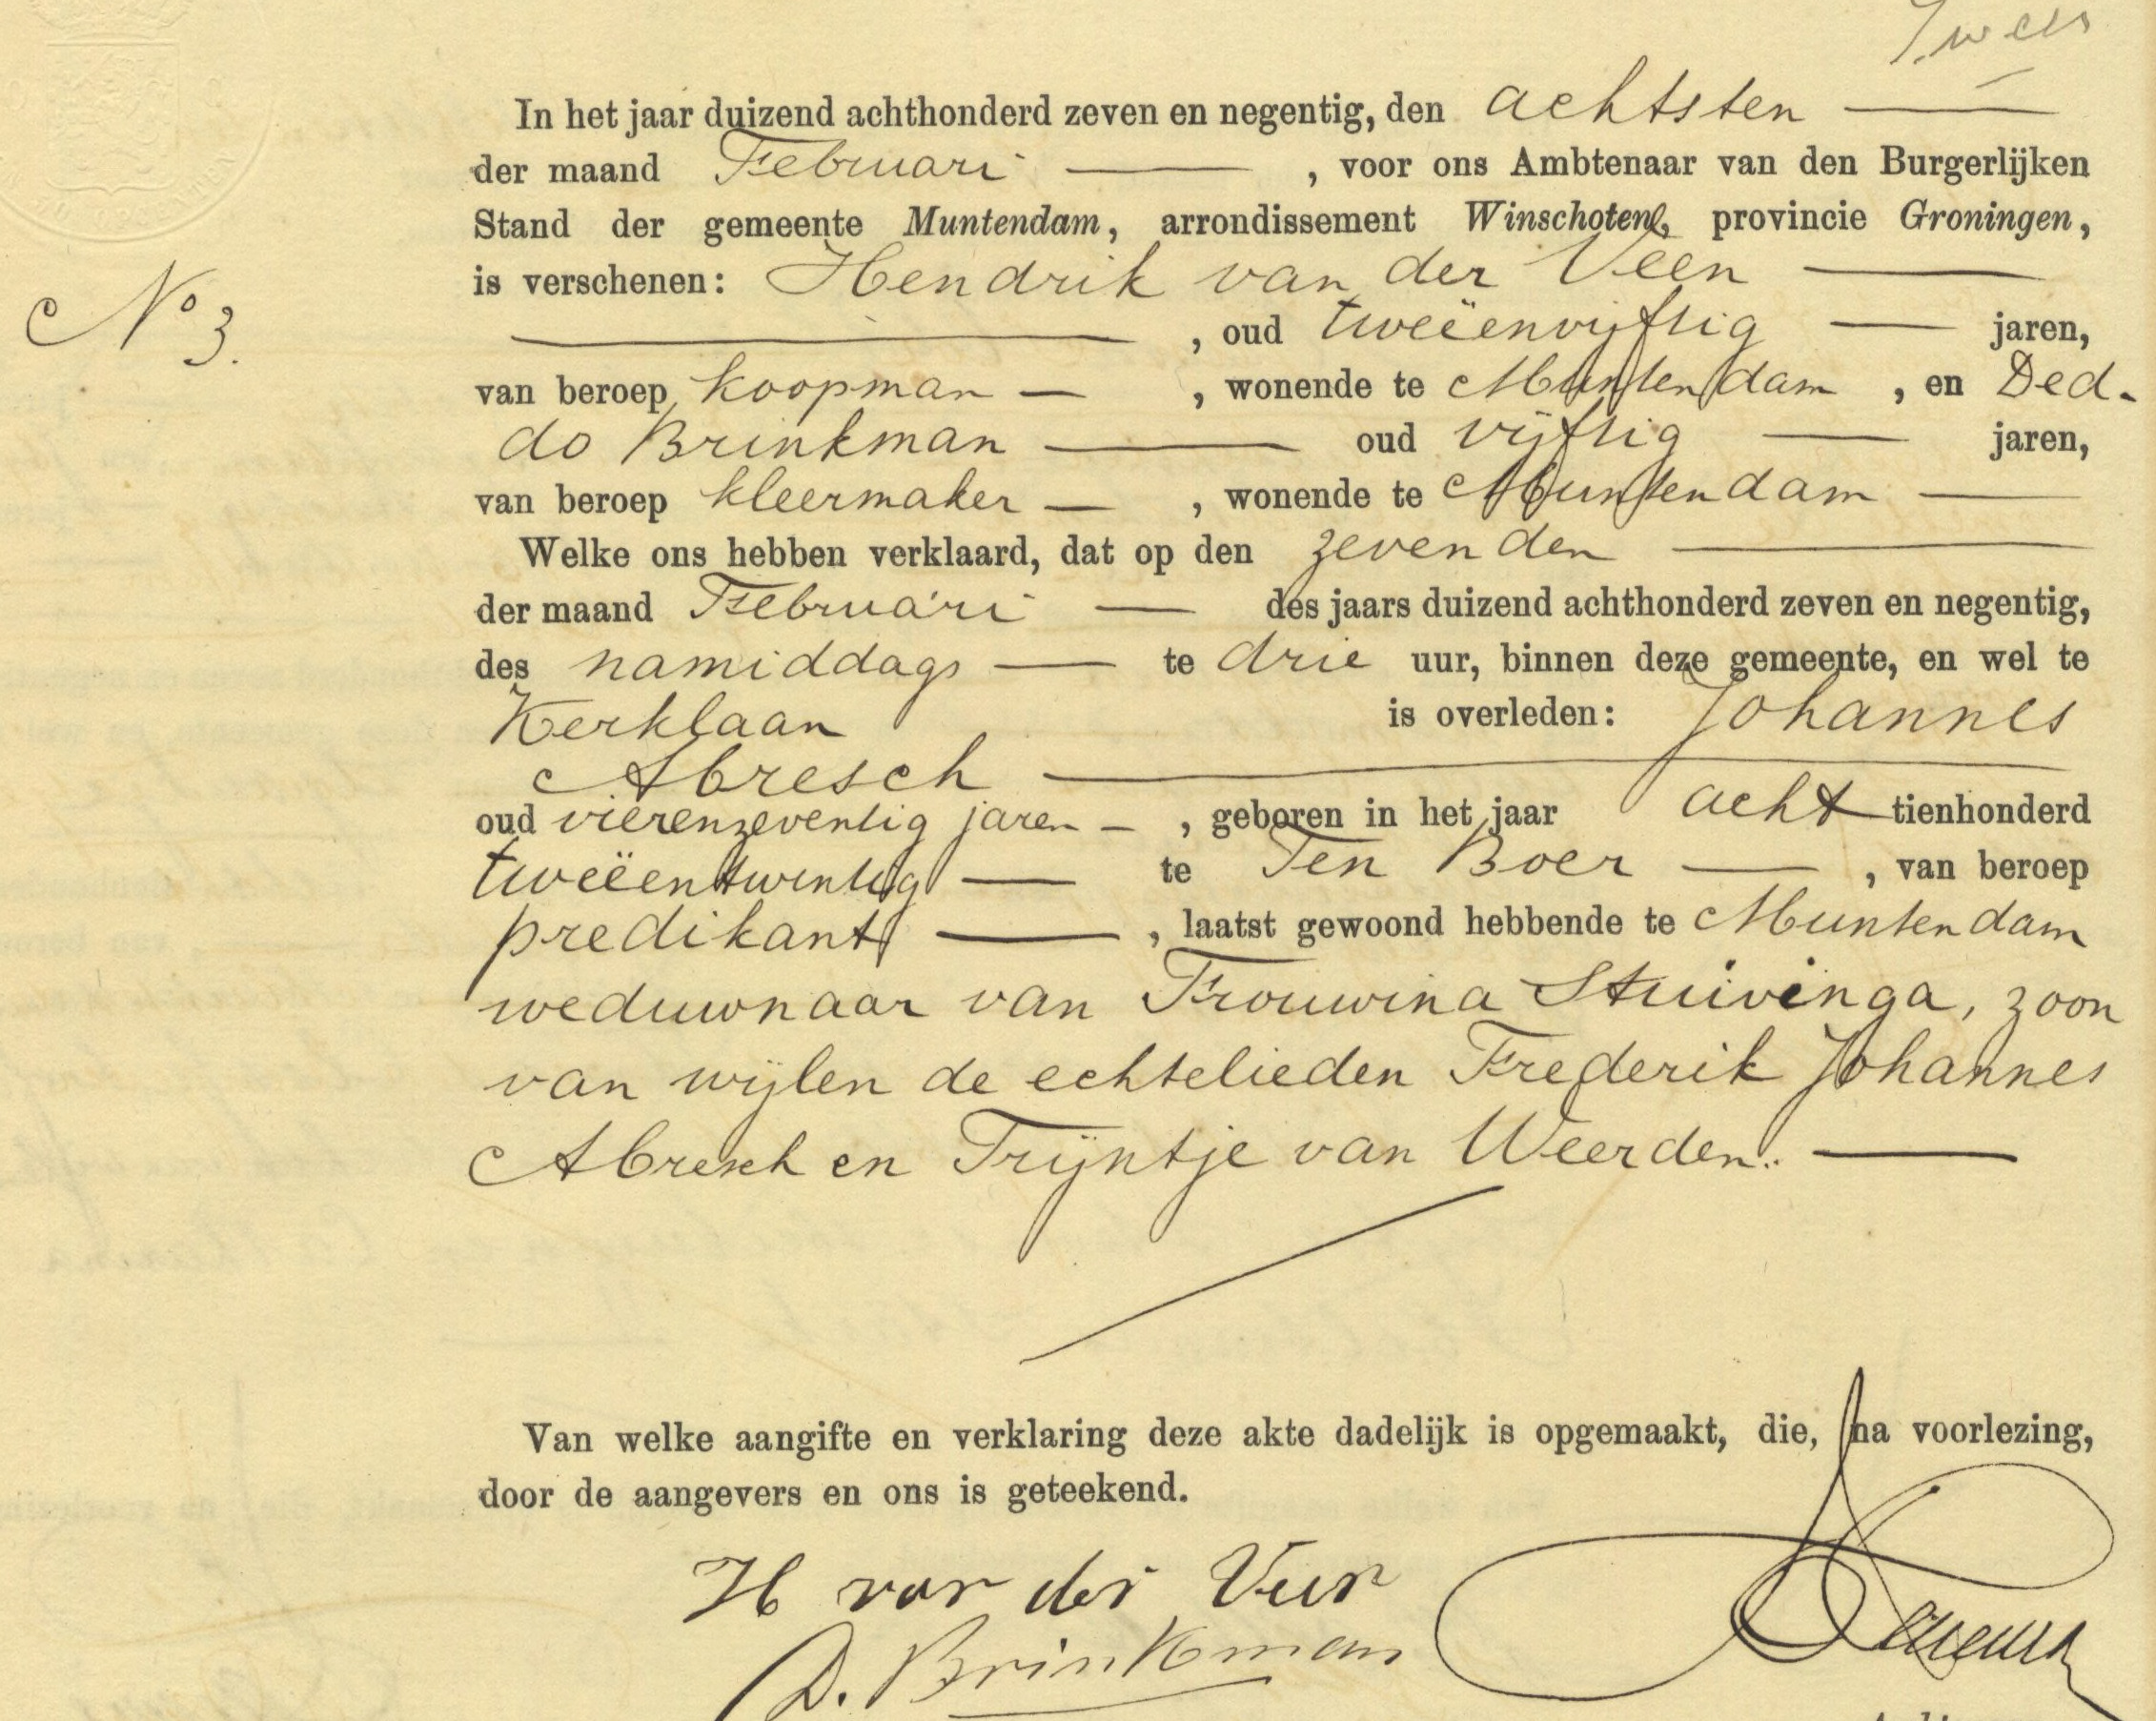 Twee
In het jaar duizend achthonderd zeven en negentig, den achtsten
der maand Februari, voor ons Ambtenaar van den Burgerlijken
Stand der gemeente Muntendam, arrondissement Winschoten, provincie Groningen,
is verschenen: Hendrik van der Veen
No 3.
, oud tweëenvijftig jaren,
van beroep koopman, wonende te Muntendam, en Ded-
do Brinkman oud vijftig jaren,
van beroep kleermaker, wonende te Muntendam
Welke ons hebben verklaard, dat op den zevenden
der maand Februari des jaars duizend achthonderd zeven en negentig,
des namiddags te drie uur, binnen deze gemeente, en wel te
Kerklaan is overleden: Johannes
Abresch
oud vierenzeventig jaren, geboren in het jaar achttienhonderd
tweëentwintig te Ten Boer, van beroep
predikant, laatst gewoond hebbende te Muntendam
weduwnaar van Frouwina Stuivinga, zoon
van wijlen de echtelieden Frederik Johannes
Abresch en Trijntje van Weerden.
Van welke aangifte en verklaring deze akte dadelijk is opgemaakt, die, na voorlezing,
door de aangevers en ons is geteekend.
H van der Veen
D. Brinkman